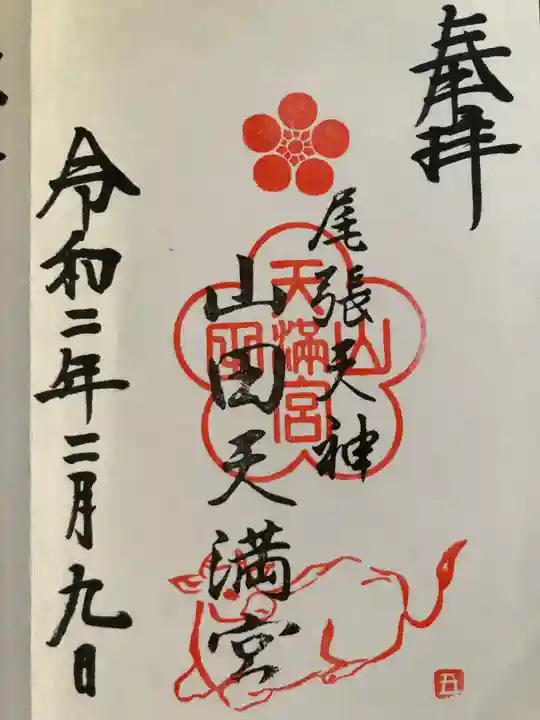 奉拝
尾張天神
山田天満宮
山田
天満宮
令和二年二月九日
五